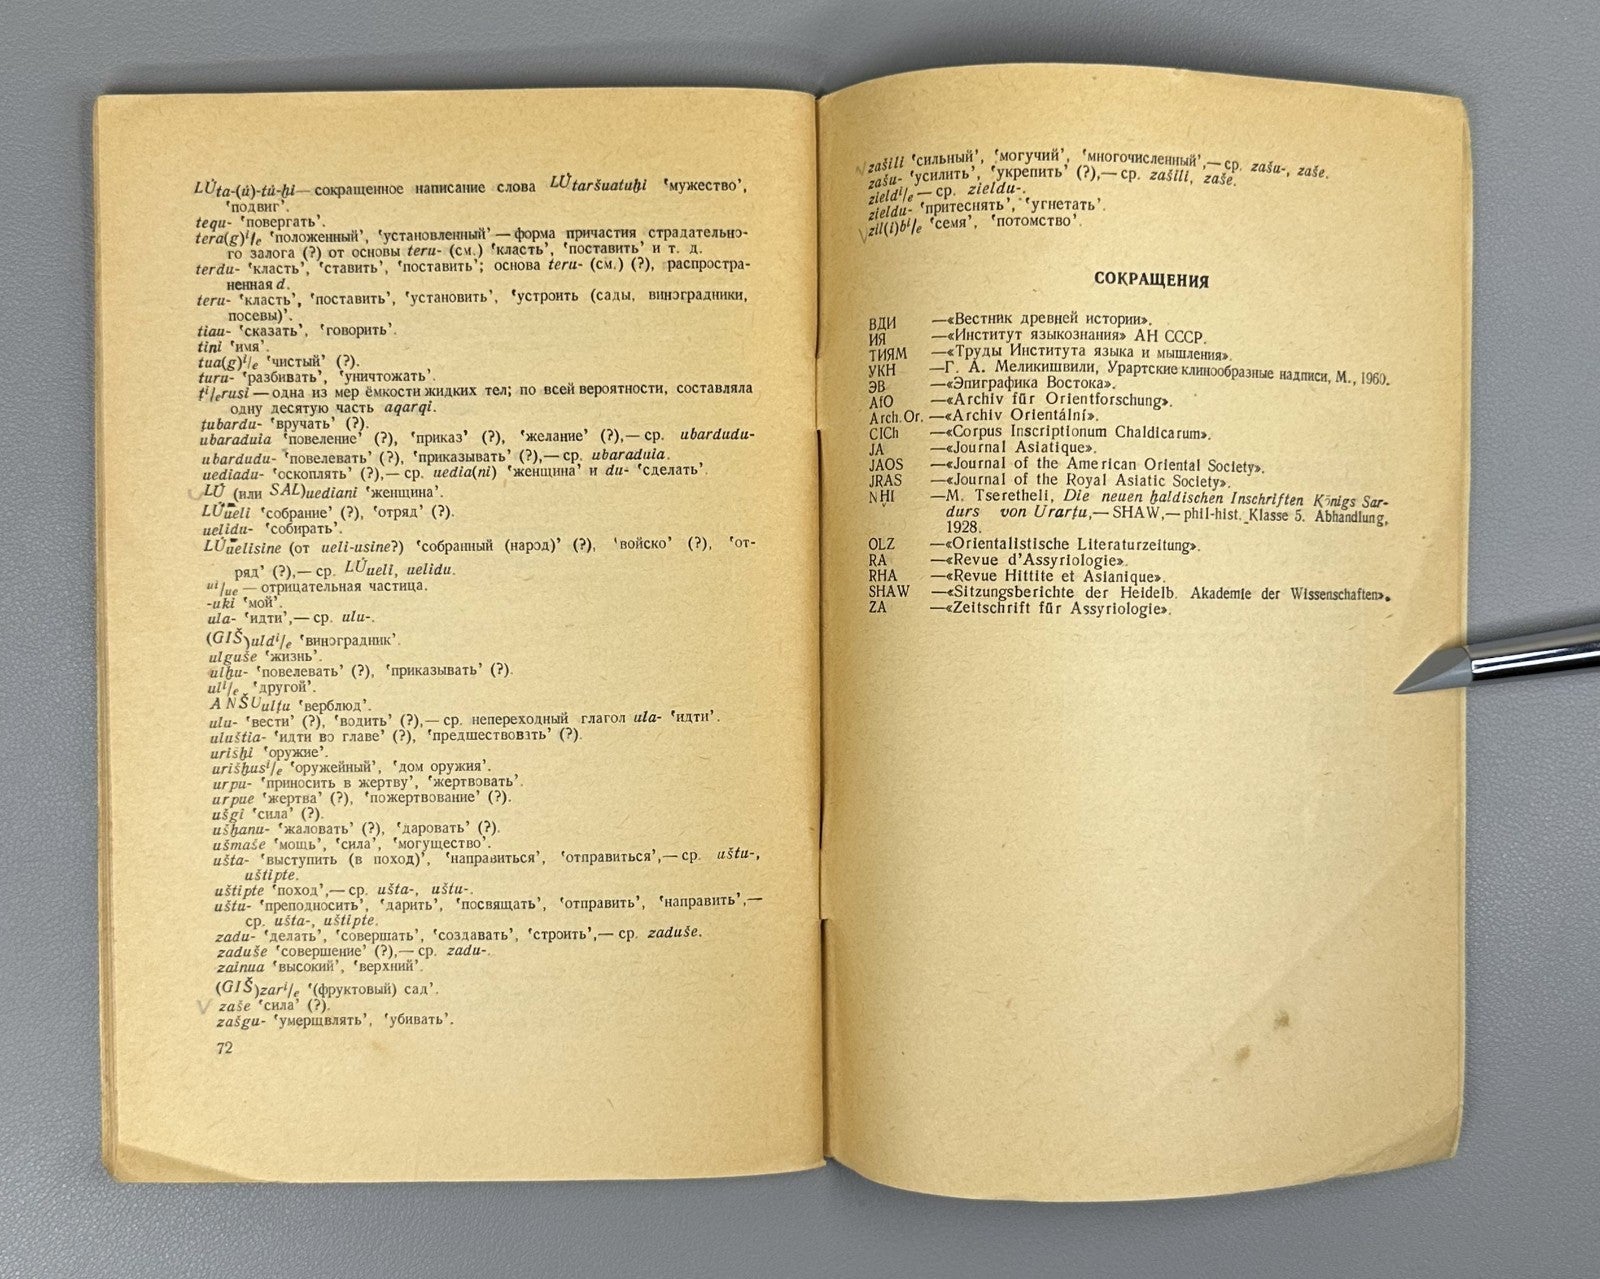 LÚta-(ú)-tú-ḫi — сокращенное написание слова LÚtaršuatuḫi ‛мужество’,
‛подвиг’.
tequ- ‛повергать’.
tera(g)i/e ‛положенный’, ‛установленный’ — форма причастия страдательно-
го залога (?) от основы teru- (см.) ‛класть’, ‛поставить’ и т. д.
terdu- ‛класть’, ‛ставить’, ‛поставить’; основа teru- (см.) (?), распростра-
ненная d.
teru- ‛класть’, ‛поставить’, ‛установить’, ‛устроить (сады, виноградники,
посевы)’.
tiau- ‛сказать’, ‛говорить’.
tini ‛имя’.
tua(g)i/e ‛чистый’ (?).
turu- ‛разбивать’, ‛уничтожать’.
ṭi/erusi — одна из мер ёмкости жидких тел; по всей вероятности, составляла
одну десятую часть aqarqi.
ṭubardu- ‛вручать’ (?).
ubaraduia ‛повеление’ (?), ‛приказ’ (?), ‛желание’ (?),— ср. ubardudu-
ubardudu- ‛повелевать’ (?), ‛приказывать’ (?),— ср. ubaraduia.
uediadu- ‛оскоплять’ (?),— ср. uedia(ni) ‛женщина’ и du- ‛сделать’.
LÚ (или SAL)uediani ‛женщина’.
LÚueli ‛собрание’ (?), ‛отряд’ (?).
uelidu- ‛собирать’.
LÚuelisine (от ueli-usine?) ‛собранный (народ)’ (?), ‛войско’ (?), ‛от-
ряд’ (?),— ср. LÚueli, uelidu.
ui/ue — отрицательная частица.
-uki ‛мой’.
ula- ‛идти’,— ср. ulu-.
(GIŠ)uldi/e ‛виноградник’.
ulguše ‛жизнь’.
ulḫu- ‛повелевать’ (?), ‛приказывать’ (?).
uli/e ‛другой’.
ANŠUulṭu ‛верблюд’.
ulu- ‛вести’ (?), ‛водить’ (?),— ср. непереходный глагол ula- ‛идти’.
uluštia- ‛идти во главе’ (?), ‛предшествовать’ (?).
urisḫi ‛оружие’.
urišḫusi/e ‛оружейный’, ‛дом оружия’.
urpu- ‛приносить в жертву’, ‛жертвовать’.
urpue ‛жертва’ (?), ‛пожертвование’ (?).
ušgi ‛сила’ (?).
ušḫanu- ‛жаловать’ (?), ‛даровать’ (?).
ušmaše ‛мощь’, ‛сила’, ‛могущество’.
ušta- ‛выступить (в поход)’, ‛направиться’, ‛отправиться’,— ср. uštu-,
uštipte.
uštipte ‛поход’,— ср. ušta-, uštu-.
uštu- ‛преподносить’, ‛дарить’, ‛посвящать’, ‛отправить’, ‛направить’,—
ср. ušta-, uštipte.
zadu- ‛делать’, ‛совершать’, ‛создавать’, ‛строить’,— ср. zaduše.
zaduše ‛совершение’ (?),— ср. zadu-.
zainua ‛высокий’, ‛верхний’.
(GIŠ)zari/e ‛(фруктовый) сад’.
zaše ‛сила’ (?).
zašgu- ‛умерщвлять’, ‛убивать’.
72
zašili ‛сильный’, ‛могучий’, ‛многочисленный’,— ср. zašu-, zaše.
zašu- ‛усилить’, ‛укрепить’ (?),— ср. zašili, zaše.
zieldi/e — ср. zieldu-.
zieldu- ‛притеснять’, ‛угнетать’.
zil(i)bi/e ‛семя’, ‛потомство’.
СОКРАЩЕНИЯ
ВДИ —«Вестник древней истории».
ИЯ —«Институт языкознания» АН СССР.
ТИЯМ —«Труды Института языка и мышления».
УКН —Г. А. Меликишвили, Урартские клинообразные надписи, М., 1960.
ЭВ —«Эпиграфика Востока».
AfO —«Archiv für Orientforschung».
Arch.Or. —«Archiv Orientální».
CICh —«Corpus Inscriptionum Chaldicarum».
JA —«Journal Asiatique».
JAOS —«Journal of the American Oriental Society».
JRAS —«Journal of the Royal Asiatic Society».
NHI —M. Tseretheli, Die neuen ḫaldischen Inschriften Königs Sar-
durs von Urarṭu,— SHAW,— phil-hist. Klasse 5. Abhandlung,
1928.
OLZ —«Orientalistische Literaturzeitung».
RA —«Revue d’Assyriologie».
RHA —«Revue Hittite et Asianique».
SHAW —«Sitzungsberichte der Heidelb. Akademie der Wissenschaften».
ZA —«Zeitschrift für Assyriologie».